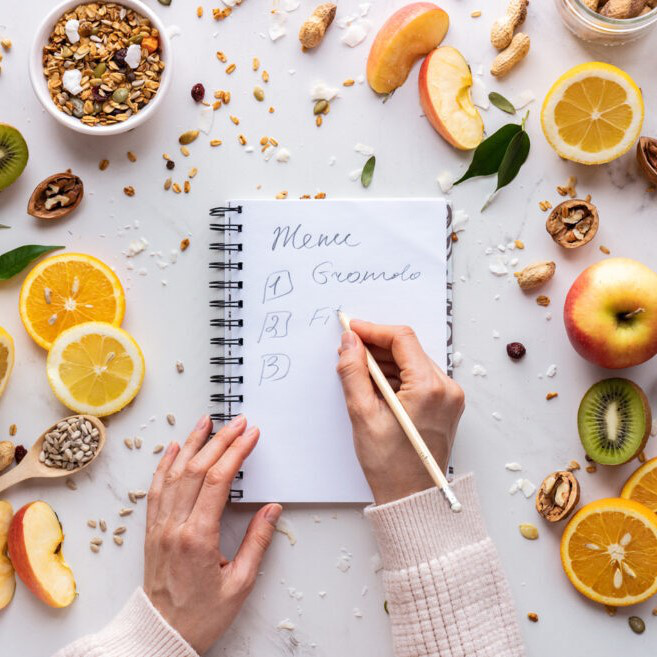 Menu
1 Granola
2 Fi
3